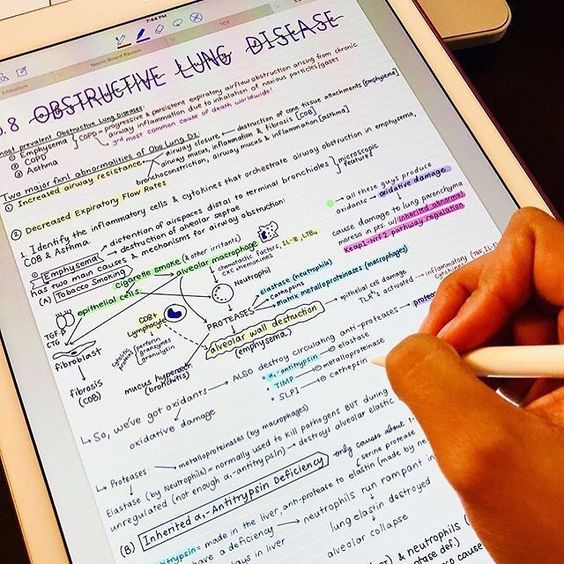 7:44 PM
Neuro Board Review
TCF
Embolism
5.8 OBSTRUCTIVE LUNG DISEASE
most prevalent Obstructive Lung Diseases:
① Emphysema
② COPD
③ Asthma
COPD = progressive & persistent expiratory airflow obstruction arising from chronic
airway inflammation due to inhalation of noxious particles/gases
3rd most common cause of death worldwide!
Two major fxnl abnormalities of Obs Lung Dz:
① Increased airway resistance:
airway closure → destruction of conn tissue attachments [emphysema]
airway mucus, inflammation & fibrosis [COB]
bronchoconstriction, airway mucus & inflammation [asthma]
② Decreased Expiratory Flow Rates
1. Identify the inflammatory cells & cytokines that orchestrate airway obstruction in emphysema,
COB & Asthma
① Emphysema
→ distention of airspaces distal to terminal bronchioles
→ destruction of alveolar septae
microscopic features
has two main causes & mechanisms for airway obstruction:
(A) Tobacco Smoking
cigarette smoke (& other irritants)
epithelial cells
alveolar macrophage
chemotactic factors,
CXC chemokines
IL-8, LTB4
Neutrophil
→ all these guys produce
oxidants → oxidative damage
cause damage to lung parenchyma
moreso in pts w/ inherited abnormal
Keap1-NRF2 pathway regulation
TGF-β
CTG
Fibroblast
Fibrosis
(COB)
CD8+
Lymphocyte
perforin
granzymes
granulysin
mucus hypersecretion
(bronchitis)
PROTEASES
Elastase (neutrophils)
Cathepsins
Matrix metalloproteinases (macrophages)
alveolar wall destruction
(emphysema)
→ epithelial cell damage
TLR's activated → inflammatory cytokines
(TNF, IL-1
↳ So, we've got oxidants → ALSO destroy circulating anti-proteases →
oxidative damage
α1-antitrypsin → elastase
TIMP → metalloproteinase
SLPI → cathepsin
↳ Proteases → metalloproteinases (by macrophages)
Elastase (by Neutrophils) = normally used to kill pathogens BUT during
unregulated (not enough α1-antitrypsin) → destroys alveolar elastic
(B) Inherited α1-Antitrypsin Deficiency
only causes about 1-
serine protease
antitrypsin = made in the liver anti-protease to elastin (made by ne
have a deficiency → neutrophils run rampant in
in liver
lung elastin destroyed
alveolar collapse
& neutrophils